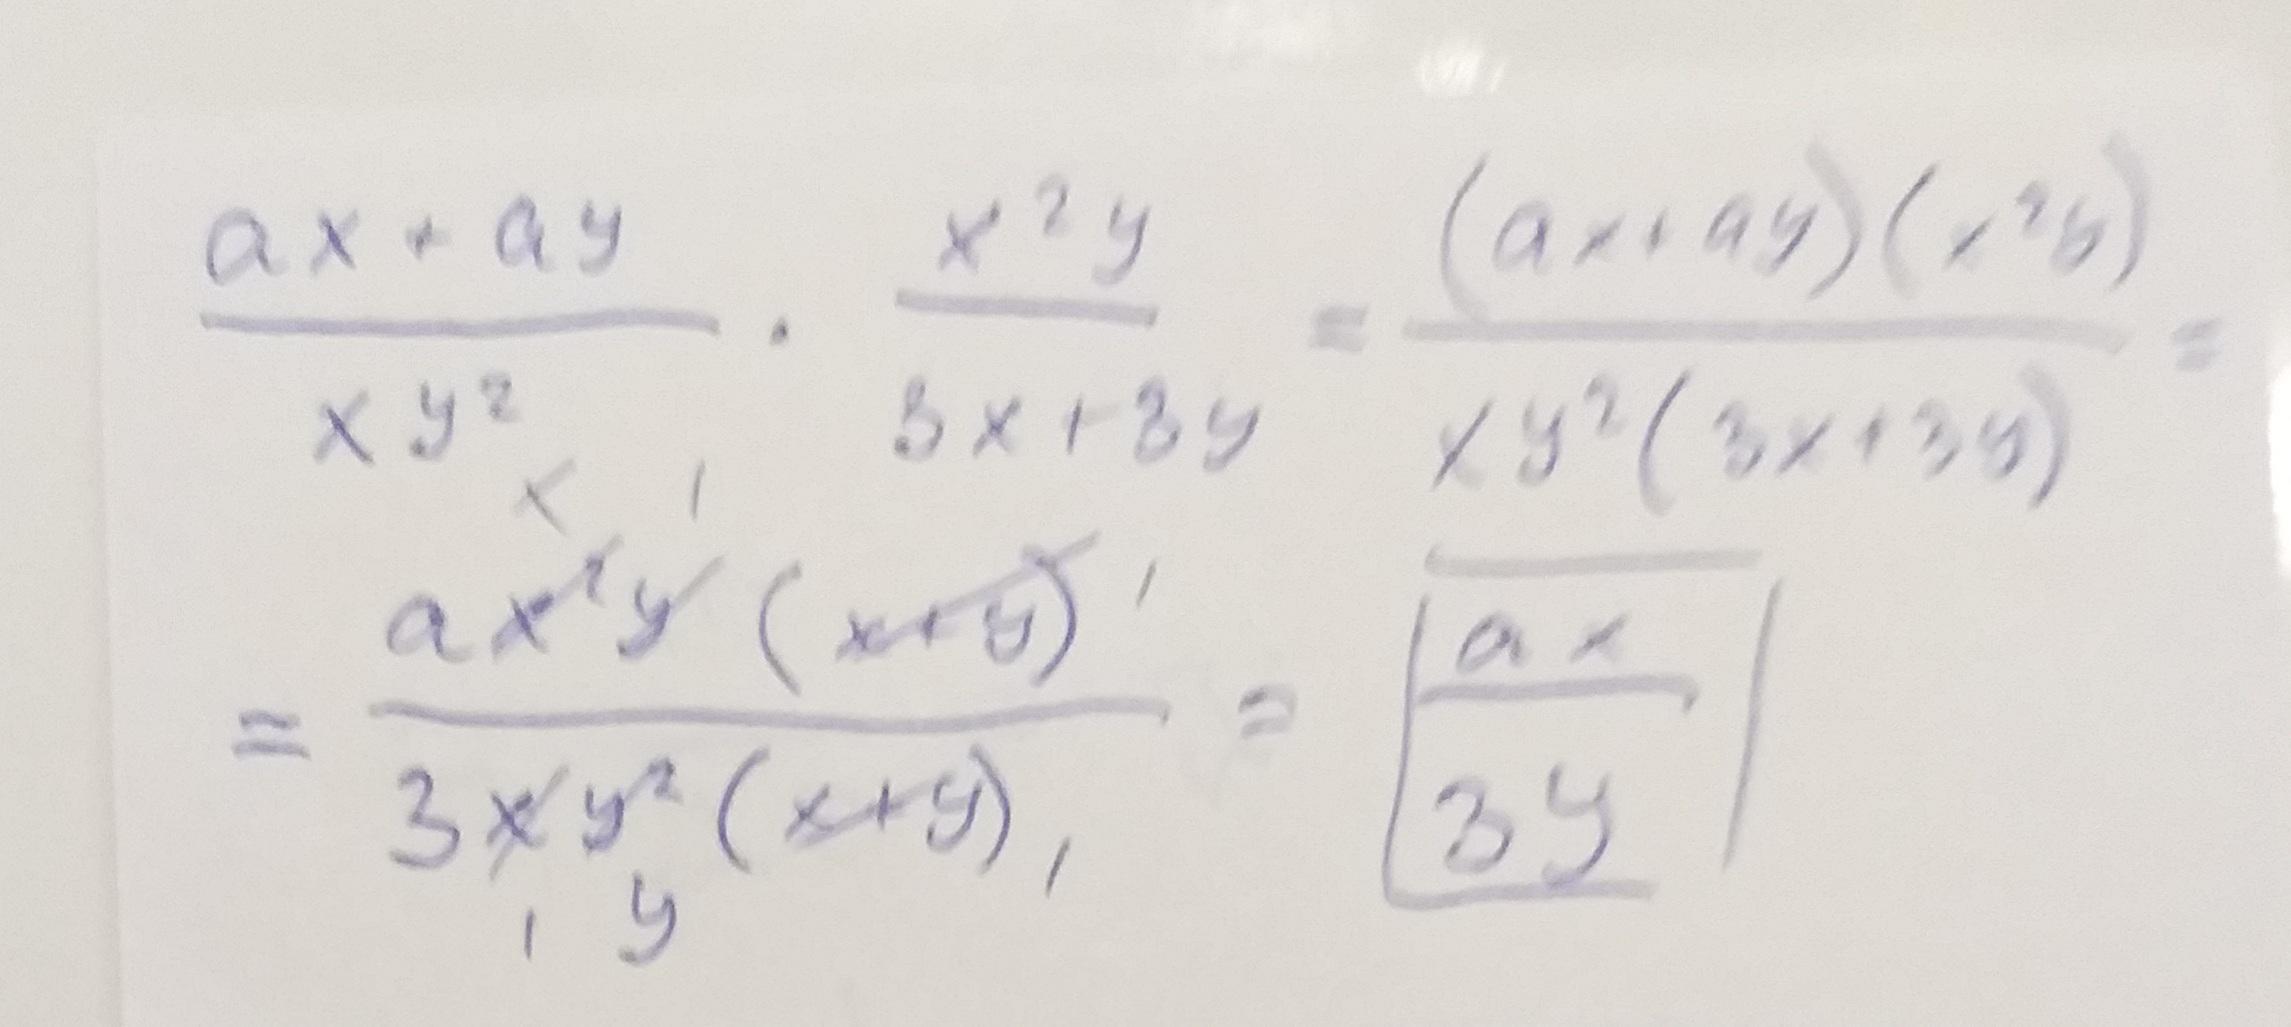 (ax + ay)/(xy²) · (x²y)/(3x + 3y) = ((ax + ay)(x²y))/(xy²(3x + 3y)) =
x 1
= (ax²y(x+y))/(3xy²(x+y)) = (ax)/(3y)
1 1
1 y